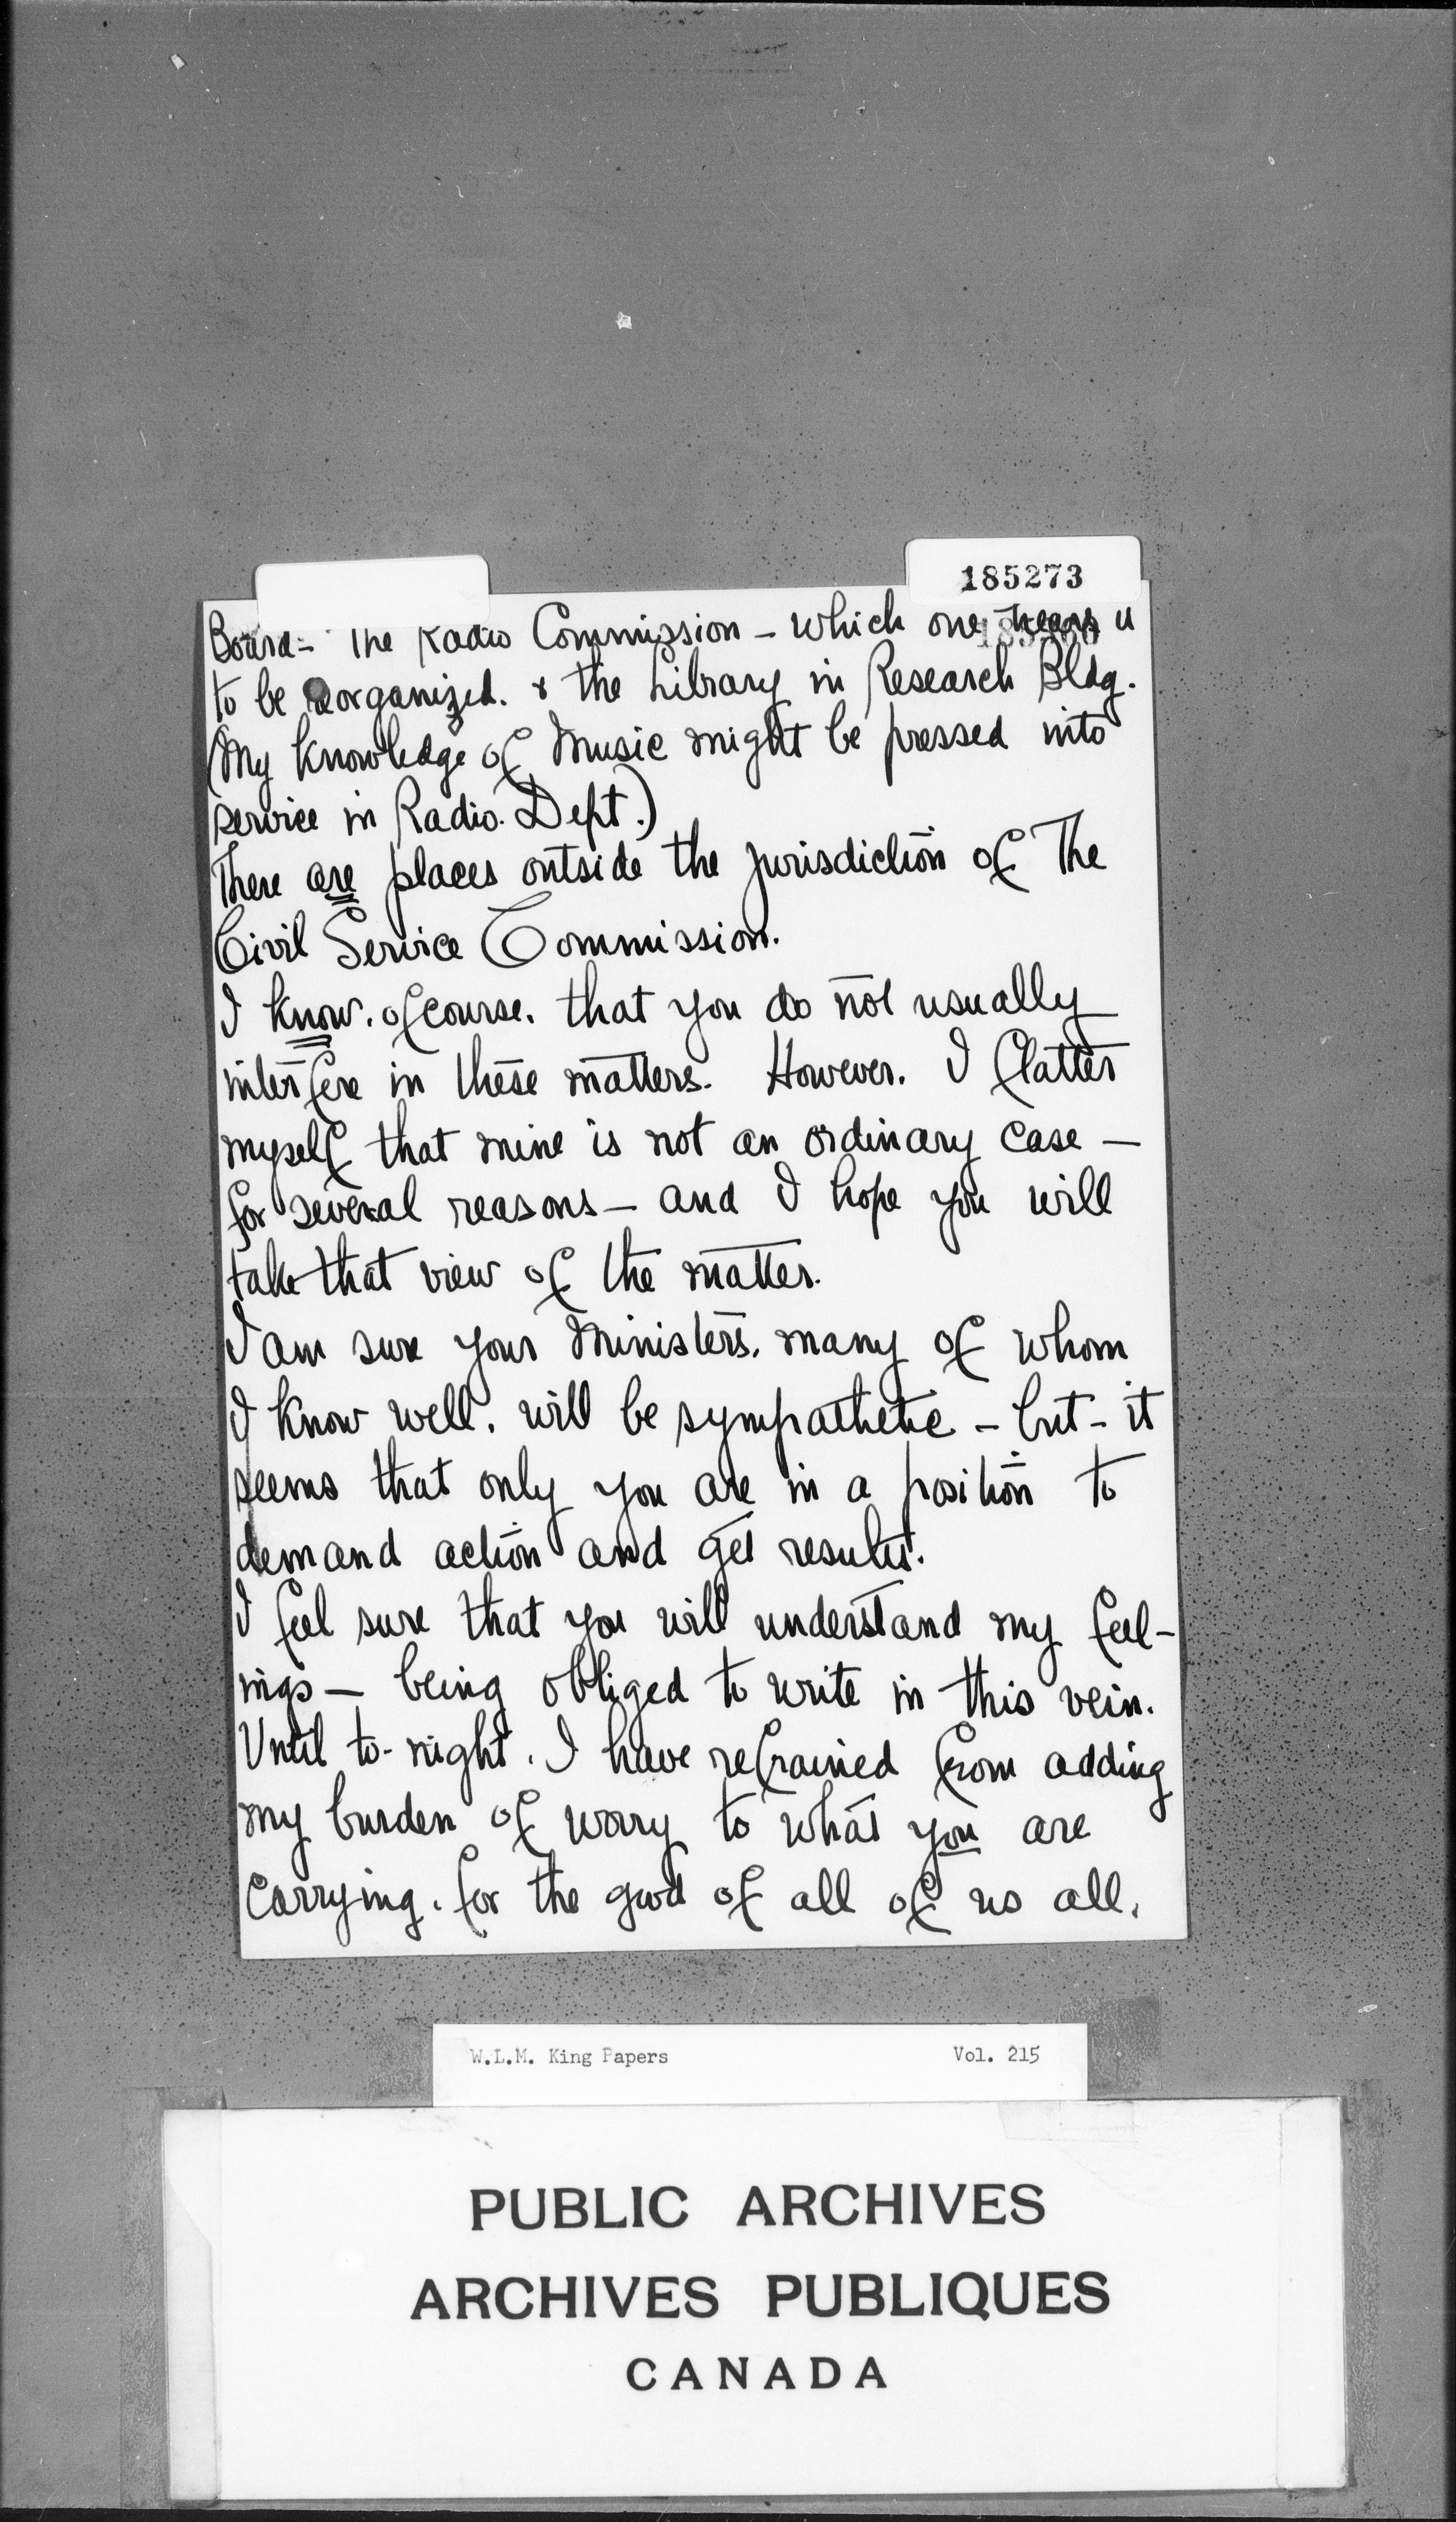 185273
Board - The Radio Commission - which one hears is
to be reorganized. & the Library in Research Bldg.
(My knowledge of Music might be pressed into
service in Radio. Dept.)
There are places outside the jurisdiction of The
Civil Service Commission.
I know. of course. that you do not usually
interfere in these matters. However. I flatter
myself that mine is not an ordinary case -
for several reasons - and I hope you will
take that view of the matter.
I am sure your Ministers. many of whom
I know well. will be sympathetic - but - it
seems that only you are in a position to
demand action and get results.
I feel sure that you will understand my feel-
ings - being obliged to write in this vein.
Until to-night. I have refrained from adding
my burden of worry to what you are
carrying. for the good of all of us all.
W.L.M. King Papers Vol. 215
PUBLIC ARCHIVES
ARCHIVES PUBLIQUES
CANADA